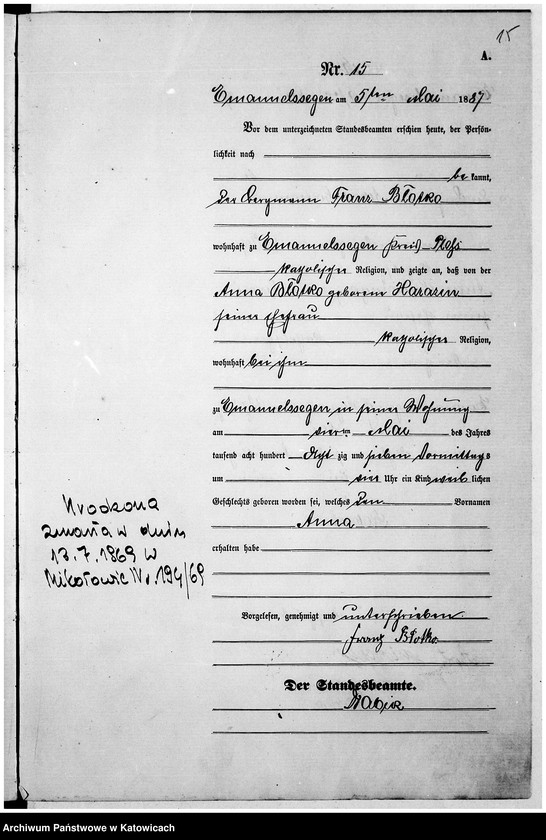 15
A.
Nr. 15
Emanuelssegen am 5ten Mai 1887
Vor dem unterzeichneten Standesbeamten erschien heute, der Persön-
lichkeit nach
be kannt,
der Bergmann Franz Błotko
wohnhaft zu Emanuelssegen Kreis Pleß
katholischer Religion, und zeigte an, daß von der
Anna Błotko geborene Harazin
seiner Ehefrau
katholischer Religion,
wohnhaft bei ihm
zu Emanuelssegen in seiner Wohnung
am vierten Mai des Jahres
tausend acht hundert Acht zig und sieben Vormittags
um vier Uhr ein Kind weib lichen
Geschlechts geboren worden sei, welches den Vornamen
Anna
erhalten habe
Vorgelesen, genehmigt und unterschrieben
Franz Błotko
Der Standesbeamte.
Urodzona
zmarła w dniu
13.7.1969 w
Mikołowie Nr. 194/69
Archiwum Państwowe w Katowicach